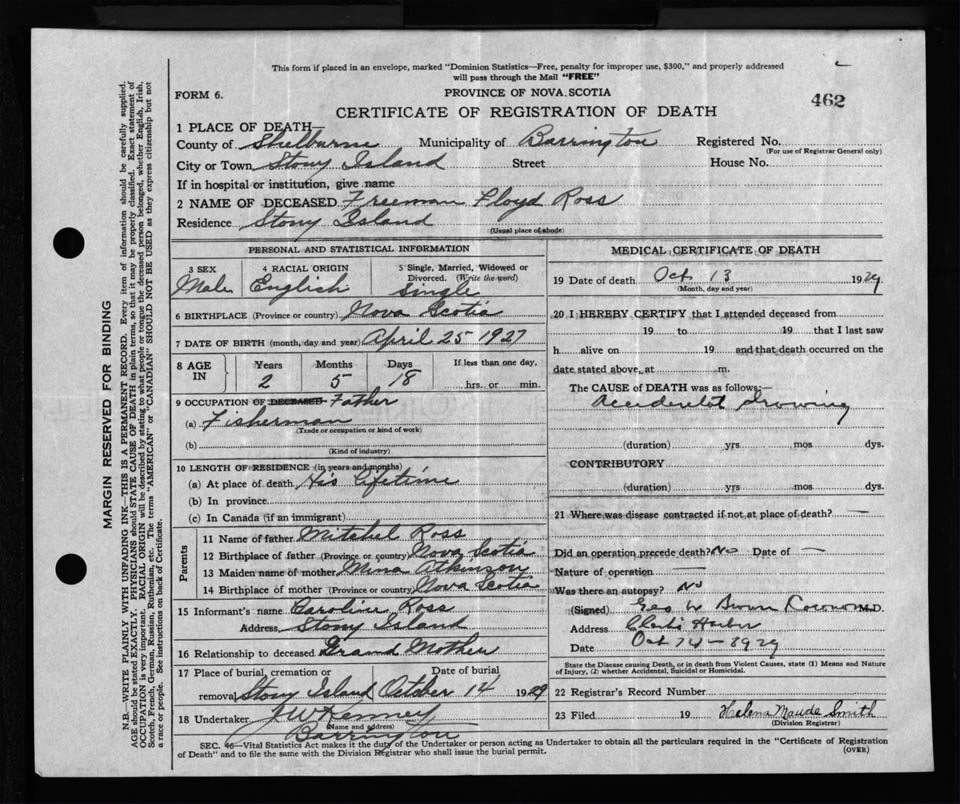 This form if placed in an envelope, marked "Dominion Statistics—Free, penalty for improper use, $300," and properly addressed
will pass through the Mail "FREE"
FORM 6.
PROVINCE OF NOVA SCOTIA
462
CERTIFICATE OF REGISTRATION OF DEATH
1 PLACE OF DEATH—
County of Shelburne Municipality of Barrington Registered No.
(For use of Registrar General only)
City or Town Stony Island Street House No.
If in hospital or institution, give name
2 NAME OF DECEASED Freeman Floyd Ross
Residence Stony Island
(Usual place of abode)
PERSONAL AND STATISTICAL INFORMATION
3 SEX 4 RACIAL ORIGIN 5 Single, Married, Widowed or
Divorced. (Write the word)
Male English Single
6 BIRTHPLACE (Province or country) Nova Scotia
7 DATE OF BIRTH (month, day and year) April 25 1927
8 AGE IN Years Months Days If less than one day,
2 5 18 hrs. or min.
9 OCCUPATION OF DECEASED Father
(a) Fisherman
(Trade or occupation or kind of work)
(b)
(Kind of industry)
10 LENGTH OF RESIDENCE (in years and months)
(a) At place of death His Lifetime
(b) In province
(c) In Canada (if an immigrant)
Parents
11 Name of father Mitchel Ross
12 Birthplace of father (Province or country) Nova Scotia
13 Maiden name of mother Mina Atkinson
14 Birthplace of mother (Province or country) Nova Scotia
15 Informant's name Caroline Ross
Address Stony Island
16 Relationship to deceased Grand Mother
17 Place of burial, cremation or Date of burial
removal Stony Island October 14 1929
18 Undertaker J W Kenney
(Name and address)
Barrington
MEDICAL CERTIFICATE OF DEATH
19 Date of death Oct 13 1929
(Month, day and year)
20 I HEREBY CERTIFY that I attended deceased from
19 to 19 that I last saw
h alive on 19 and that death occurred on the
date stated above, at m.
The CAUSE of DEATH was as follows:—
Accidental Drowning
(duration) yrs mos dys.
CONTRIBUTORY
(duration) yrs mos dys.
21 Where was disease contracted if not at place of death? —
Did an operation precede death? No Date of —
Nature of operation —
Was there an autopsy? No
(Signed) Geo W Brown Coroner M.D.
Address Clarks Harbor
Date Oct 14 – 1929
State the Disease causing Death, or in death from Violent Causes, state (1) Means and Nature
of Injury, (2) whether Accidental, Suicidal or Homicidal.
22 Registrar's Record Number
23 Filed 19 Helena Maude Smith
(Division Registrar)
SEC. 46—Vital Statistics Act makes it the duty of the Undertaker or person acting as Undertaker to obtain all the particulars required in the "Certificate of Registration
of Death" and to file the same with the Division Registrar who shall issue the burial permit.
(OVER)
MARGIN RESERVED FOR BINDING
N.B.—WRITE PLAINLY WITH UNFADING INK—THIS IS A PERMANENT RECORD. Every item of information should be carefully supplied.
AGE should be stated EXACTLY. PHYSICIANS should STATE CAUSE OF DEATH in plain terms, so that it may be properly classified. Exact statement of
OCCUPATION is very important. RACIAL ORIGIN will be described by stating to what people or tongue the deceased person belonged, whether English, Irish,
Scotch, French, German, Russian, Ruthenian, etc. The terms "AMERICAN" or "CANADIAN" SHOULD NOT BE USED as they express citizenship but not
a race or people. See instructions on back of Certificate.